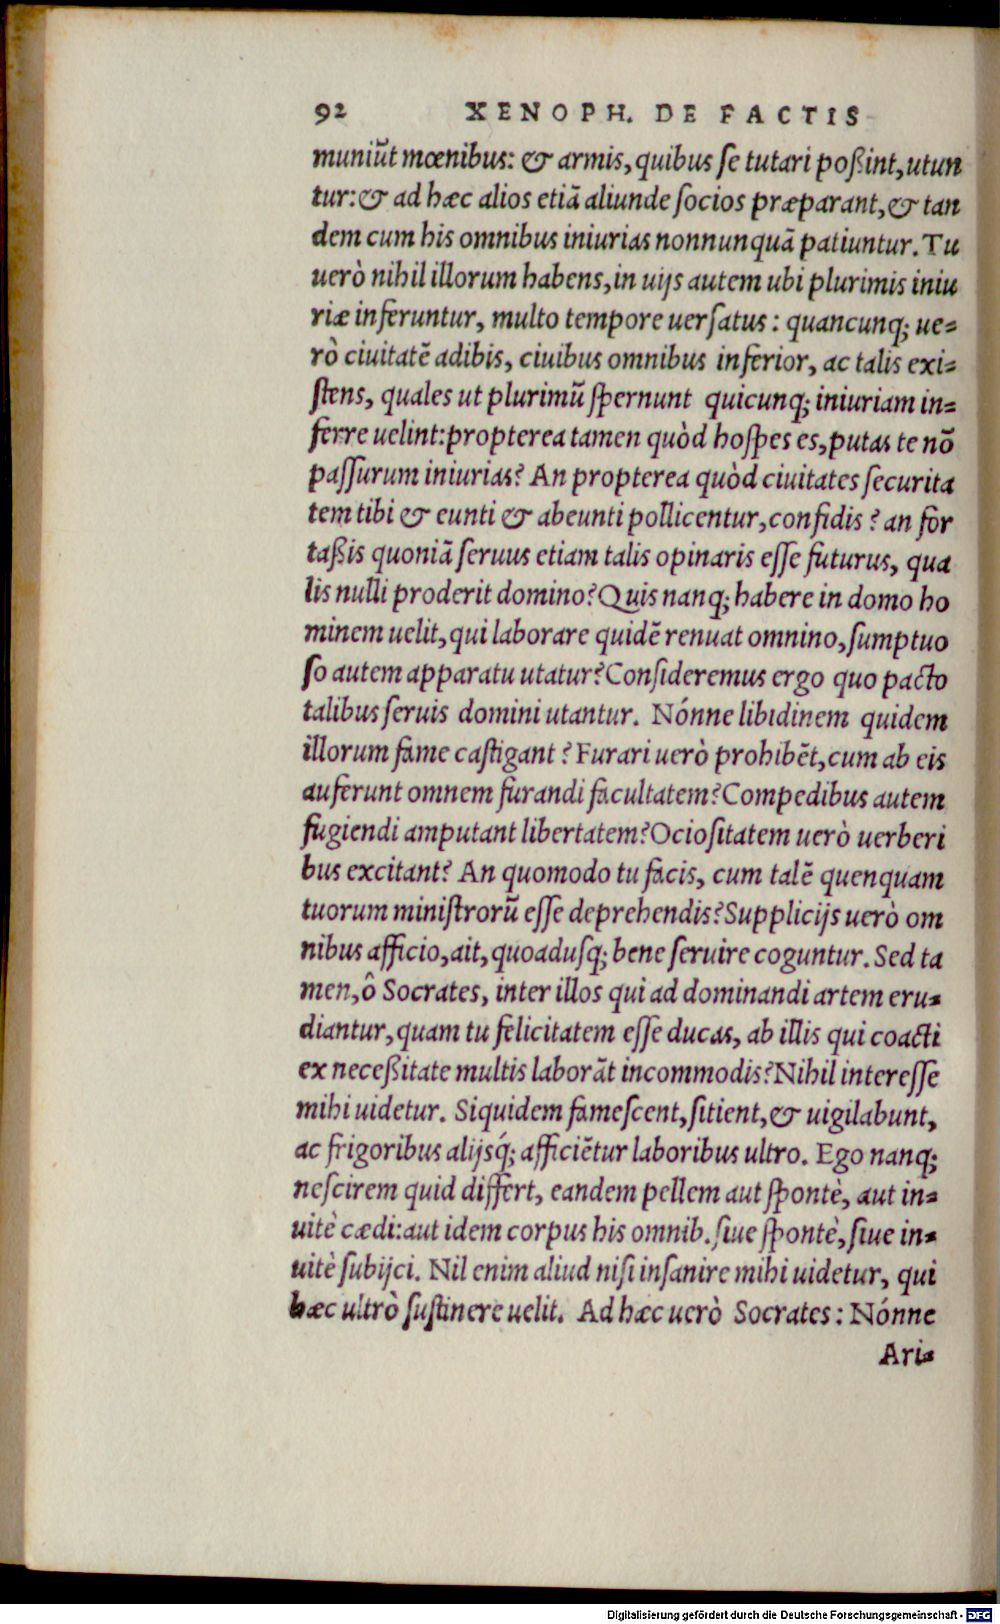 92 XENOPH. DE FACTIS
muniũt mœnibus: & armis, quibus se tutari poßint, utun
tur: & ad hæc alios etiã aliunde socios præparant, & tan
dem cum his omnibus iniurias nonnunquã patiuntur. Tu
uerò nihil illorum habens, in uijs autem ubi plurimis iniu
riæ inferuntur, multo tempore uersatus: quancunq; ue=
rò ciuitatẽ adibis, ciuibus omnibus inferior, ac talis exi=
stens, quales ut plurimũ spernunt quicunq; iniuriam in=
ferre uelint: propterea tamen quòd hospes es, putas te nõ
passurum iniurias? An propterea quòd ciuitates securita
tem tibi & eunti & abeunti pollicentur, confidis? an for
taßis quoniã seruus etiam talis opinaris esse futurus, qua
lis nulli proderit domino? Quis nanq; habere in domo ho
minem uelit, qui laborare quidẽ renuat omnino, sumptuo
so autem apparatu utatur? Consideremus ergo quo pacto
talibus seruis domini utantur. Nónne libidinem quidem
illorum fame castigant? Furari uerò prohibẽt, cum ab eis
auferunt omnem furandi facultatem? Compedibus autem
fugiendi amputant libertatem? Ociositatem uerò uerberi
bus excitant? An quomodo tu facis, cum talẽ quenquam
tuorum ministrorũ esse deprehendis? Supplicijs uerò om
nibus afficio, ait, quoadusq; bene seruire coguntur. Sed ta
men, ô Socrates, inter illos qui ad dominandi artem eru=
diantur, quam tu felicitatem esse ducas, ab illis qui coacti
ex neceßitate multis laborãt incommodis? Nihil interesse
mihi uidetur. Siquidem famescent, sitient, & uigilabunt,
ac frigoribus alijsq́; afficiẽtur laboribus ultro. Ego nanq;
nescirem quid differt, eandem pellem aut spontè, aut in=
uitè cædi: aut idem corpus his omnib. siue spontè, siue in=
uitè subijci. Nil enim aliud nisi insanire mihi uidetur, qui
hæc ultrò sustinere uelit. Ad hæc uerò Socrates: Nónne
Ari=
Digitalisierung gefördert durch die Deutsche Forschungsgemeinschaft - DFG